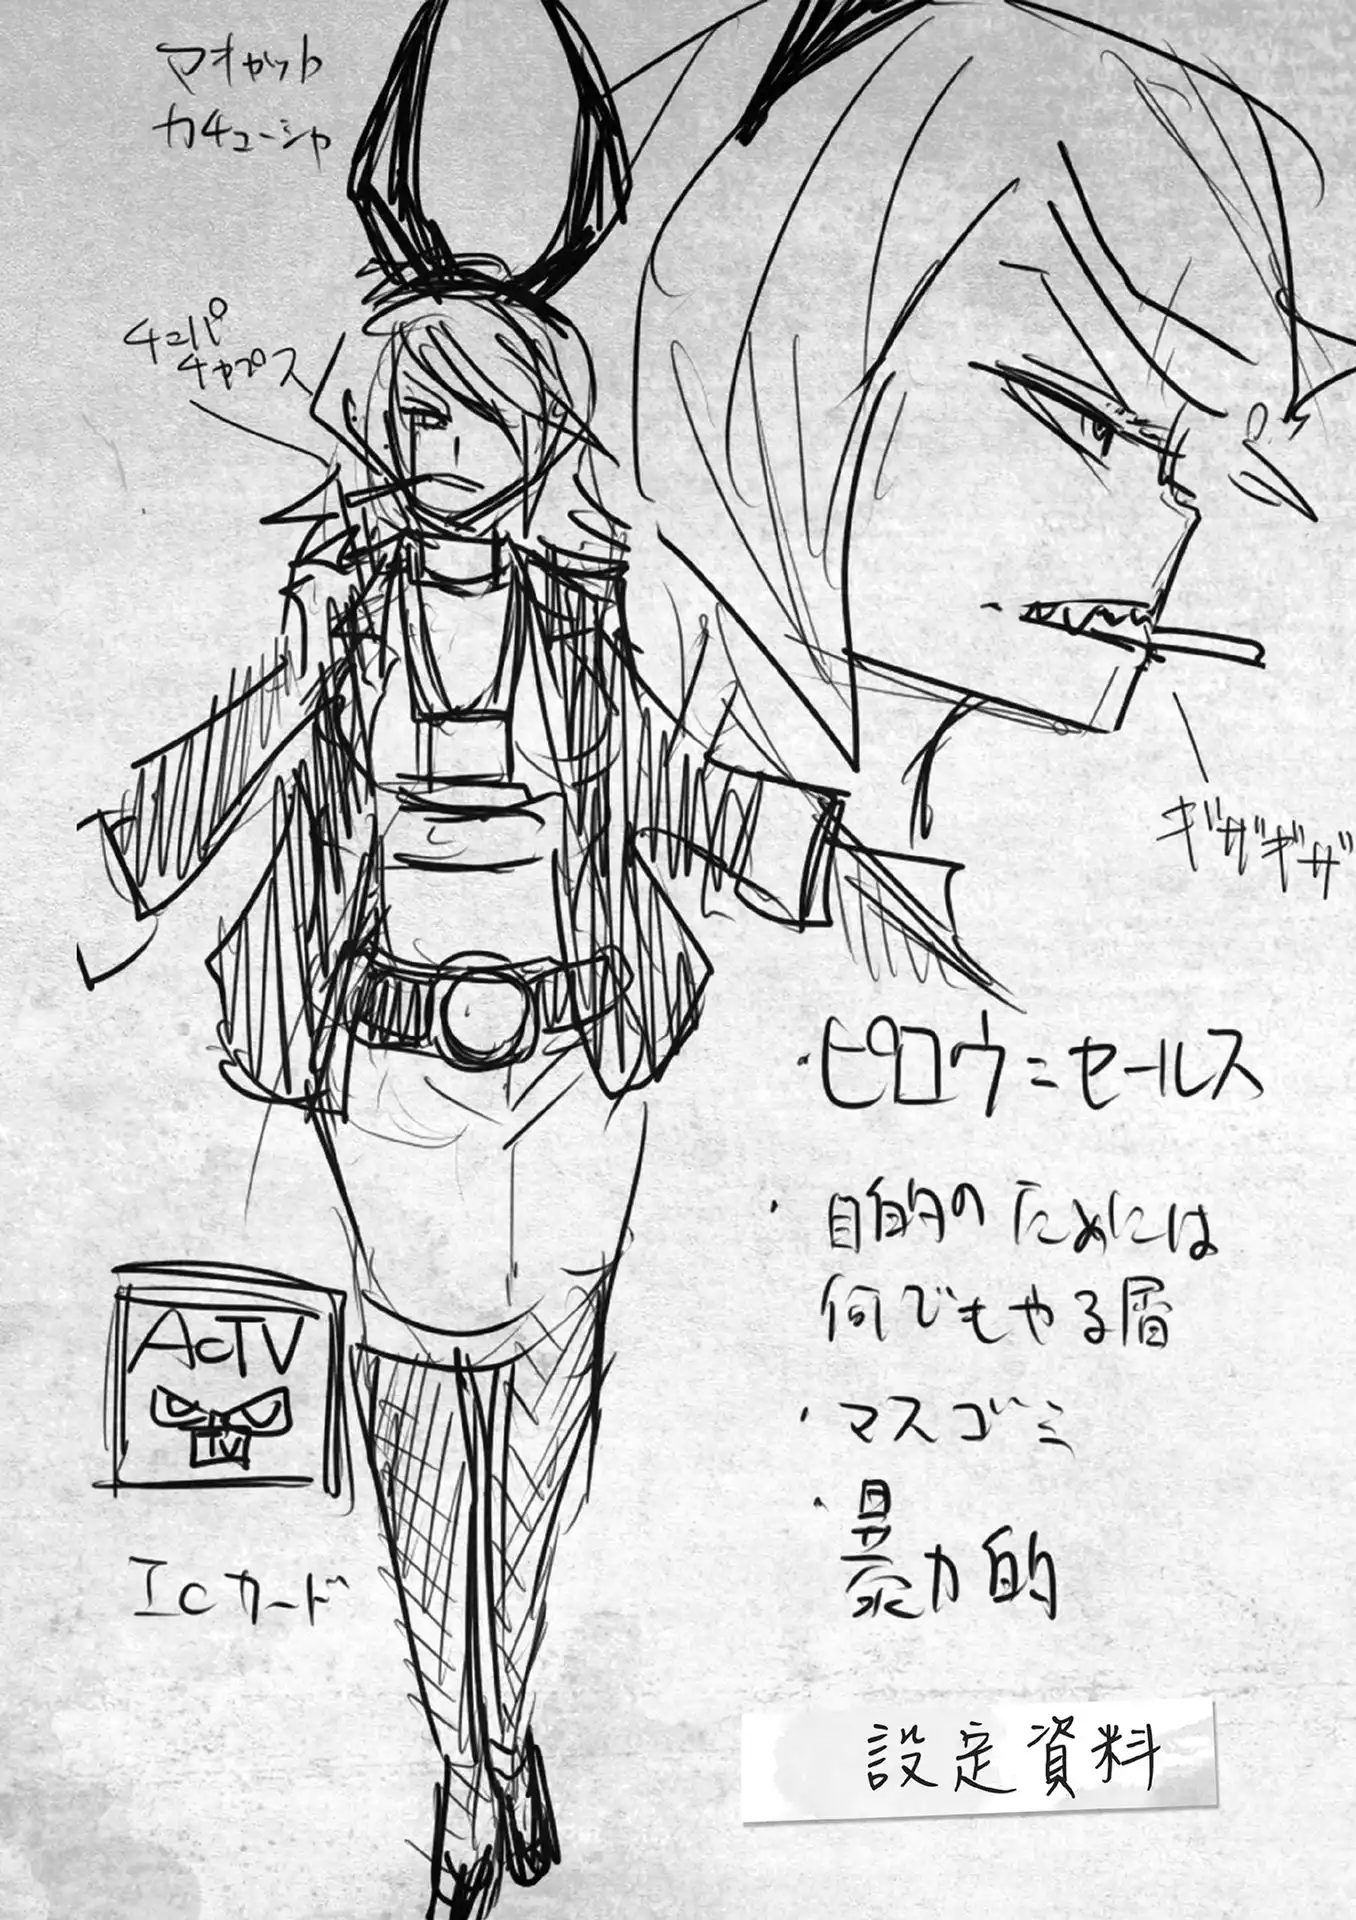 マオキャット
カチューシャ
チュパ
チャプス
ギザギザ
・ピロウ=セールス
・目的のためには
何でもやる屑
・マスゴミ
・暴力的
AcTV
TV
Icカード
設定資料